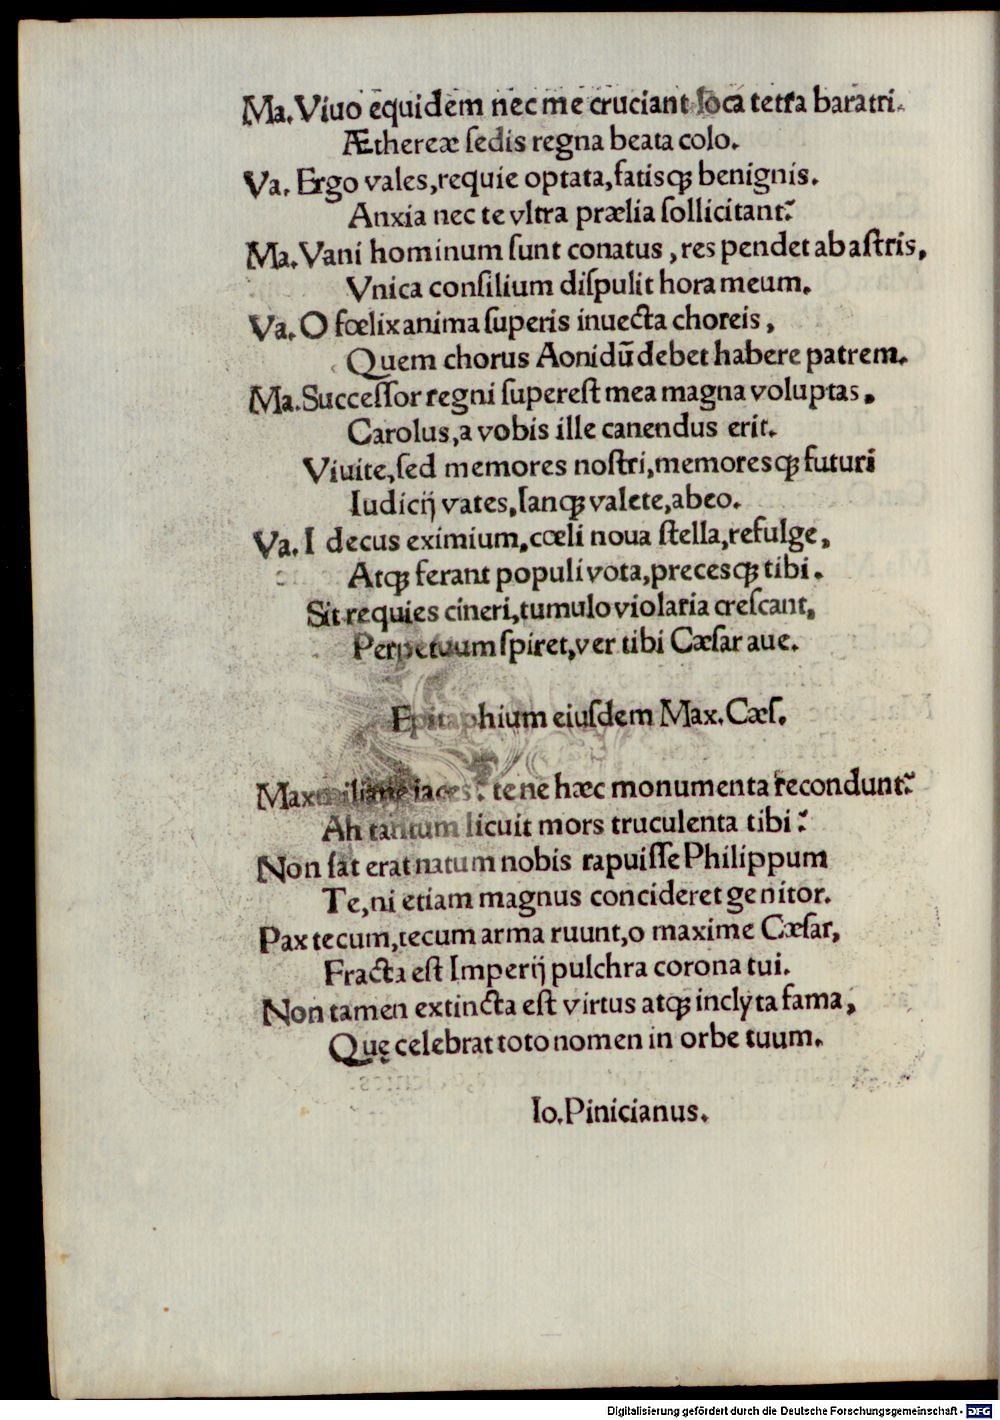 Ma. Viuo equidem nec me cruciant loca tetra baratri.
Æthereæ ſedis regna beata colo.
Va. Ergo vales, requie optata, fatisqꝫ benignis.
Anxia nec te vltra prælia ſollicitant?
Ma. Vani hominum ſunt conatus, res pendet ab aſtris,
Vnica conſilium diſpulit hora meum.
Va. O fœlix anima ſuperis inuecta choreis,
Quem chorus Aonidū debet habere patrem.
Ma. Succeſſor regni ſupereſt mea magna voluptas,
Carolus, a vobis ille canendus erit.
Viuite, ſed memores noſtri, memoresqꝫ futuri
Iudicij vates, ſanqꝫ valete, abeo.
Va. I decus eximium, cœli noua ſtella, refulge,
Atqꝫ ferant populi vota, precesqꝫ tibi.
Sit requies cineri, tumulo violaria creſcant,
Perpetuum ſpiret, ver tibi Cæſar aue.
Epitaphium eiuſdem Max. Cæſ.
Maxmiliane iaces? te ne hæc monumenta recondunt?
Ah tantum licuit mors truculenta tibi?
Non ſat erat natum nobis rapuiſſe Philippum
Te, ni etiam magnus concideret genitor.
Pax tecum, tecum arma ruunt, o maxime Cæſar,
Fracta eſt Imperij pulchra corona tui.
Non tamen extincta eſt virtus atqꝫ inclyta fama,
Quę celebrat toto nomen in orbe tuum.
Io. Pinicianus.
Digitalisierung gefördert durch die Deutsche Forschungsgemeinschaft - DFG